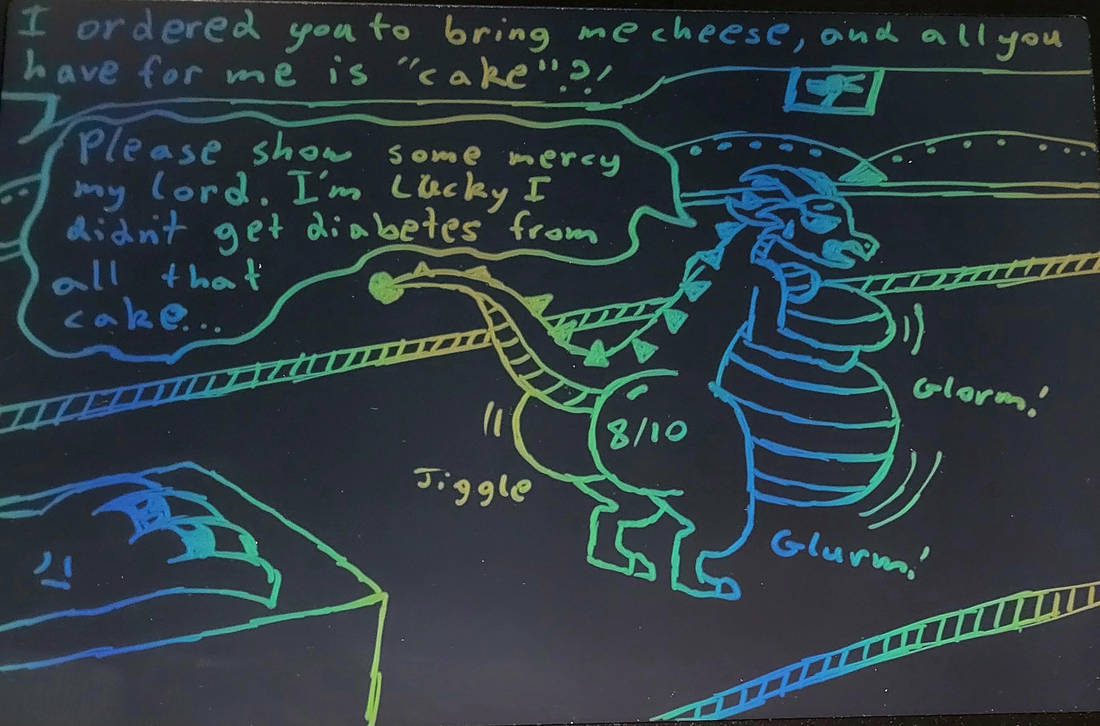 I ordered you to bring me cheese, and all you
have for me is "cake"?!
Please show some mercy
my lord. I'm lucky I
didn't get diabetes from
all that
cake...
8/10
Glorm!
Jiggle
Glurm!